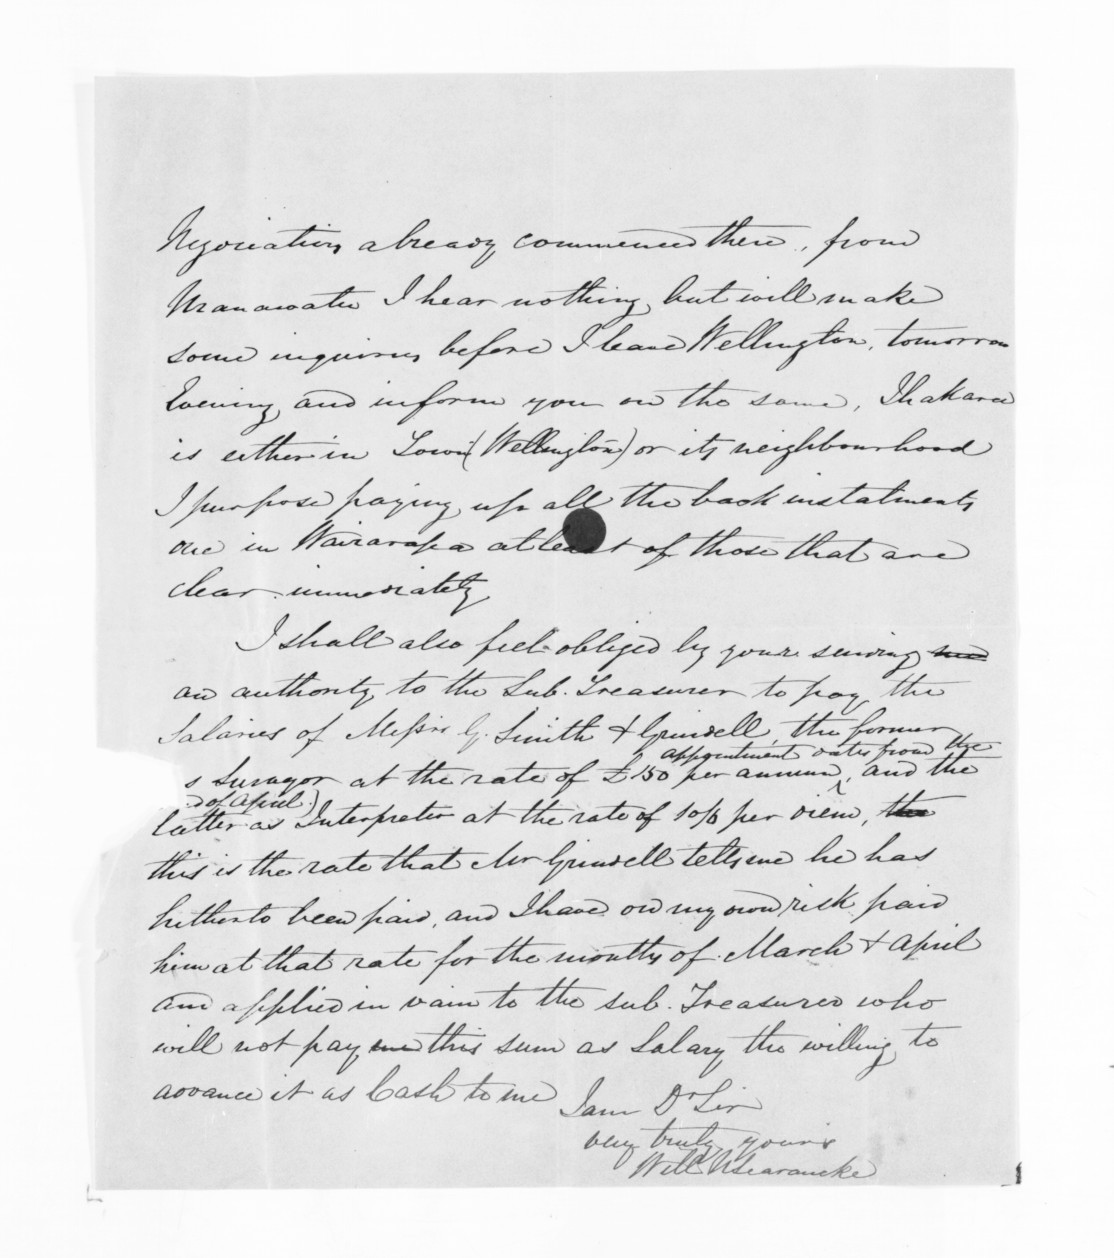 Negociation already commenced there, from
Manawatu I hear nothing, but will make
some inquiries before I leave Wellington, tomorrow
Evening and inform you on the same, Ihakara
is either in Town (Wellington) or its neighbourhood
I purpose paying up all the back instalments
due in Wairarapa at least of those that are
clear immediately
I shall also feel obliged by your sending me
an authority to the Sub. Treasurer to pay the
Salaries of Messrs G. Smith & Grindell, the former
appointment dates from the
s Surveyor at the rate of £150 per annum, and the
of April)
latter as Interpreter at the rate of 10/6 per diem, the
this is the rate that Mr Grindell tells me he has
hitherto been paid, and I have on my own risk paid
him at that rate for the months of March & April
and applied in vain to the sub. Treasurer who
will not pay me this sum as Salary tho willing to
advance it as Cash to me
I am Dr Sir
very truly yours
Will N Searancke